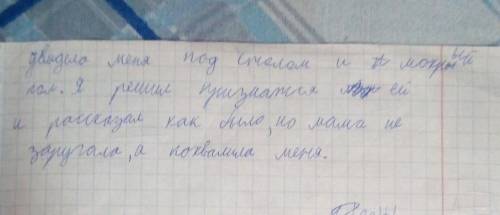 увидела меня под столом и мокрый
пол. Я решил признаться ей
и рассказал как было, но мама не
заругала, а похвалила меня.